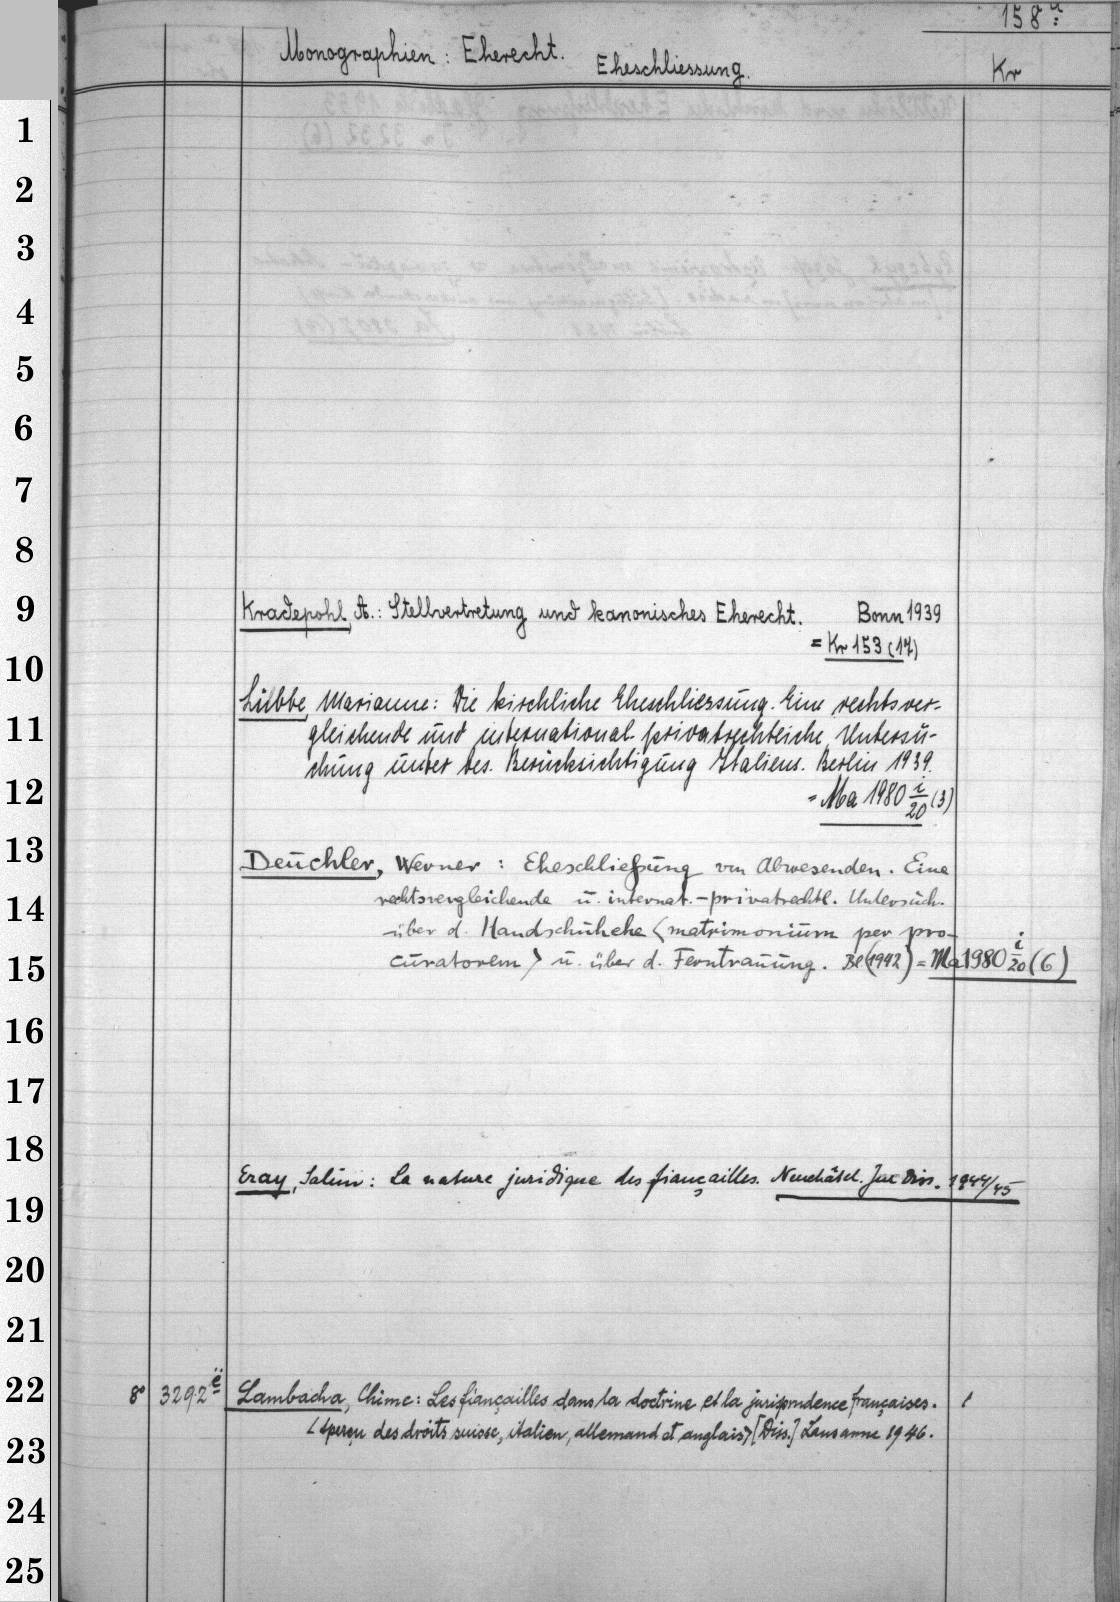 158ᵘ
Monographien: Eherecht. Eheschliessung. Kr
1
2
3
4
5
6
7
8
9
Kradepohl, A.: Stellvertretung und kanonisches Eherecht. Bonn 1939
= Kr 153 (17)
10
Lübbe, Marianne: Die kirchliche Eheschliessung. Eine rechtsver-
11
gleichende und international-privatrechtliche Untersu-
chung unter bes. Berücksichtigung Italiens. Berlin 1939.
12
= Ma 1980 i/20 (3)
13
Deuchler, Werner: Eheschließung von Abwesenden. Eine
14
rechtsvergleichende u. internat.-privatrechtl. Untersuch.
über d. Handschuhehe <matrimonium per pro-
15
curatorem> u. über d. Ferntrauung. Be (1942) = Ma 1980 i/20 (6)
16
17
18
Eray, Salim: La nature juridique des fiançailles. Neuchâtel. Jur Diss. 1944/45
19
20
21
22
8° 3292ë Lambacha, Chime: Les fiançailles dans la doctrine et la jurisprudence françaises. 1
<Aperçu des droits suisse, italien, allemand et anglais> [Diss.] Lausanne 1946.
23
24
25